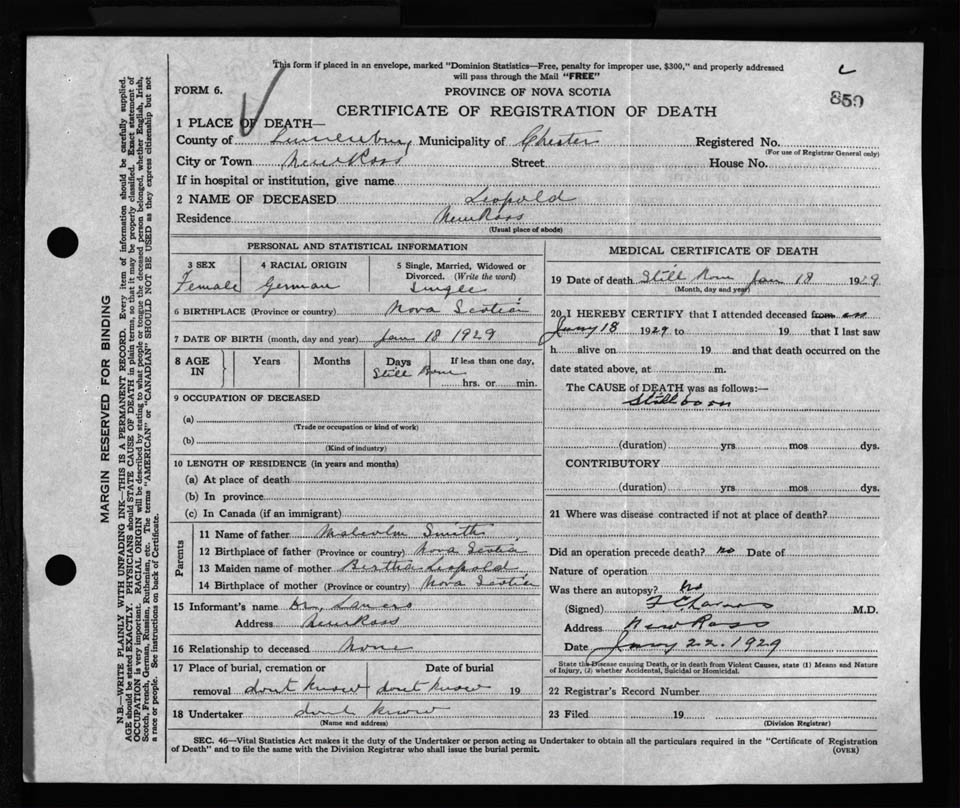 This form if placed in an envelope, marked "Dominion Statistics—Free, penalty for improper use, $300," and properly addressed
will pass through the Mail "FREE"
FORM 6.
PROVINCE OF NOVA SCOTIA
859
CERTIFICATE OF REGISTRATION OF DEATH
1 PLACE OF DEATH—
County of Lunenburg Municipality of Chester Registered No.
(For use of Registrar General only)
City or Town New Ross Street House No.
If in hospital or institution, give name
2 NAME OF DECEASED Leopold
Residence New Ross
(Usual place of abode)
PERSONAL AND STATISTICAL INFORMATION
3 SEX 4 RACIAL ORIGIN 5 Single, Married, Widowed or
Divorced. (Write the word)
Female German Single
6 BIRTHPLACE (Province or country) Nova Scotia
7 DATE OF BIRTH (month, day and year) Jan 18 1929
8 AGE IN Years Months Days If less than one day,
Still Born hrs. or min.
9 OCCUPATION OF DECEASED
(a)
(Trade or occupation or kind of work)
(b)
(Kind of industry)
10 LENGTH OF RESIDENCE (in years and months)
(a) At place of death
(b) In province
(c) In Canada (if an immigrant)
Parents
11 Name of father Malcolm Smith
12 Birthplace of father (Province or country) Nova Scotia
13 Maiden name of mother Bertha Leopold
14 Birthplace of mother (Province or country) Nova Scotia
15 Informant's name Dr.
Address New Ross
16 Relationship to deceased None
17 Place of burial, cremation or Date of burial
removal dont know dont know 19
18 Undertaker dont know
(Name and address)
MEDICAL CERTIFICATE OF DEATH
19 Date of death Still Born Jan 18 1929
(Month, day and year)
20 I HEREBY CERTIFY that I attended deceased from
Jany 18 1929 to 19 that I last saw
h alive on 19 and that death occurred on the
date stated above, at m.
The CAUSE of DEATH was as follows:—
Stillborn
(duration) yrs mos dys.
CONTRIBUTORY
(duration) yrs mos dys.
21 Where was disease contracted if not at place of death?
Did an operation precede death? no Date of
Nature of operation
Was there an autopsy? No
(Signed) M.D.
Address New Ross
Date Jany 22. 1929
State the Disease causing Death, or in death from Violent Causes, state (1) Means and Nature
of Injury, (2) whether Accidental, Suicidal or Homicidal.
22 Registrar's Record Number
23 Filed 19
(Division Registrar)
SEC. 46—Vital Statistics Act makes it the duty of the Undertaker or person acting as Undertaker to obtain all the particulars required in the "Certificate of Registration
of Death" and to file the same with the Division Registrar who shall issue the burial permit. (OVER)
MARGIN RESERVED FOR BINDING
N.B.—WRITE PLAINLY WITH UNFADING INK—THIS IS A PERMANENT RECORD. Every item of information should be carefully supplied.
AGE should be stated EXACTLY. PHYSICIANS should STATE CAUSE OF DEATH in plain terms, so that it may be properly classified. Exact statement of
OCCUPATION is very important. RACIAL ORIGIN will be described by stating to what people or tongue the deceased person belonged, whether English, Irish,
Scotch, French, German, Russian, Ruthenian, etc. The terms "AMERICAN" or "CANADIAN" SHOULD NOT BE USED as they express citizenship but not
a race or people. See instructions on back of Certificate.